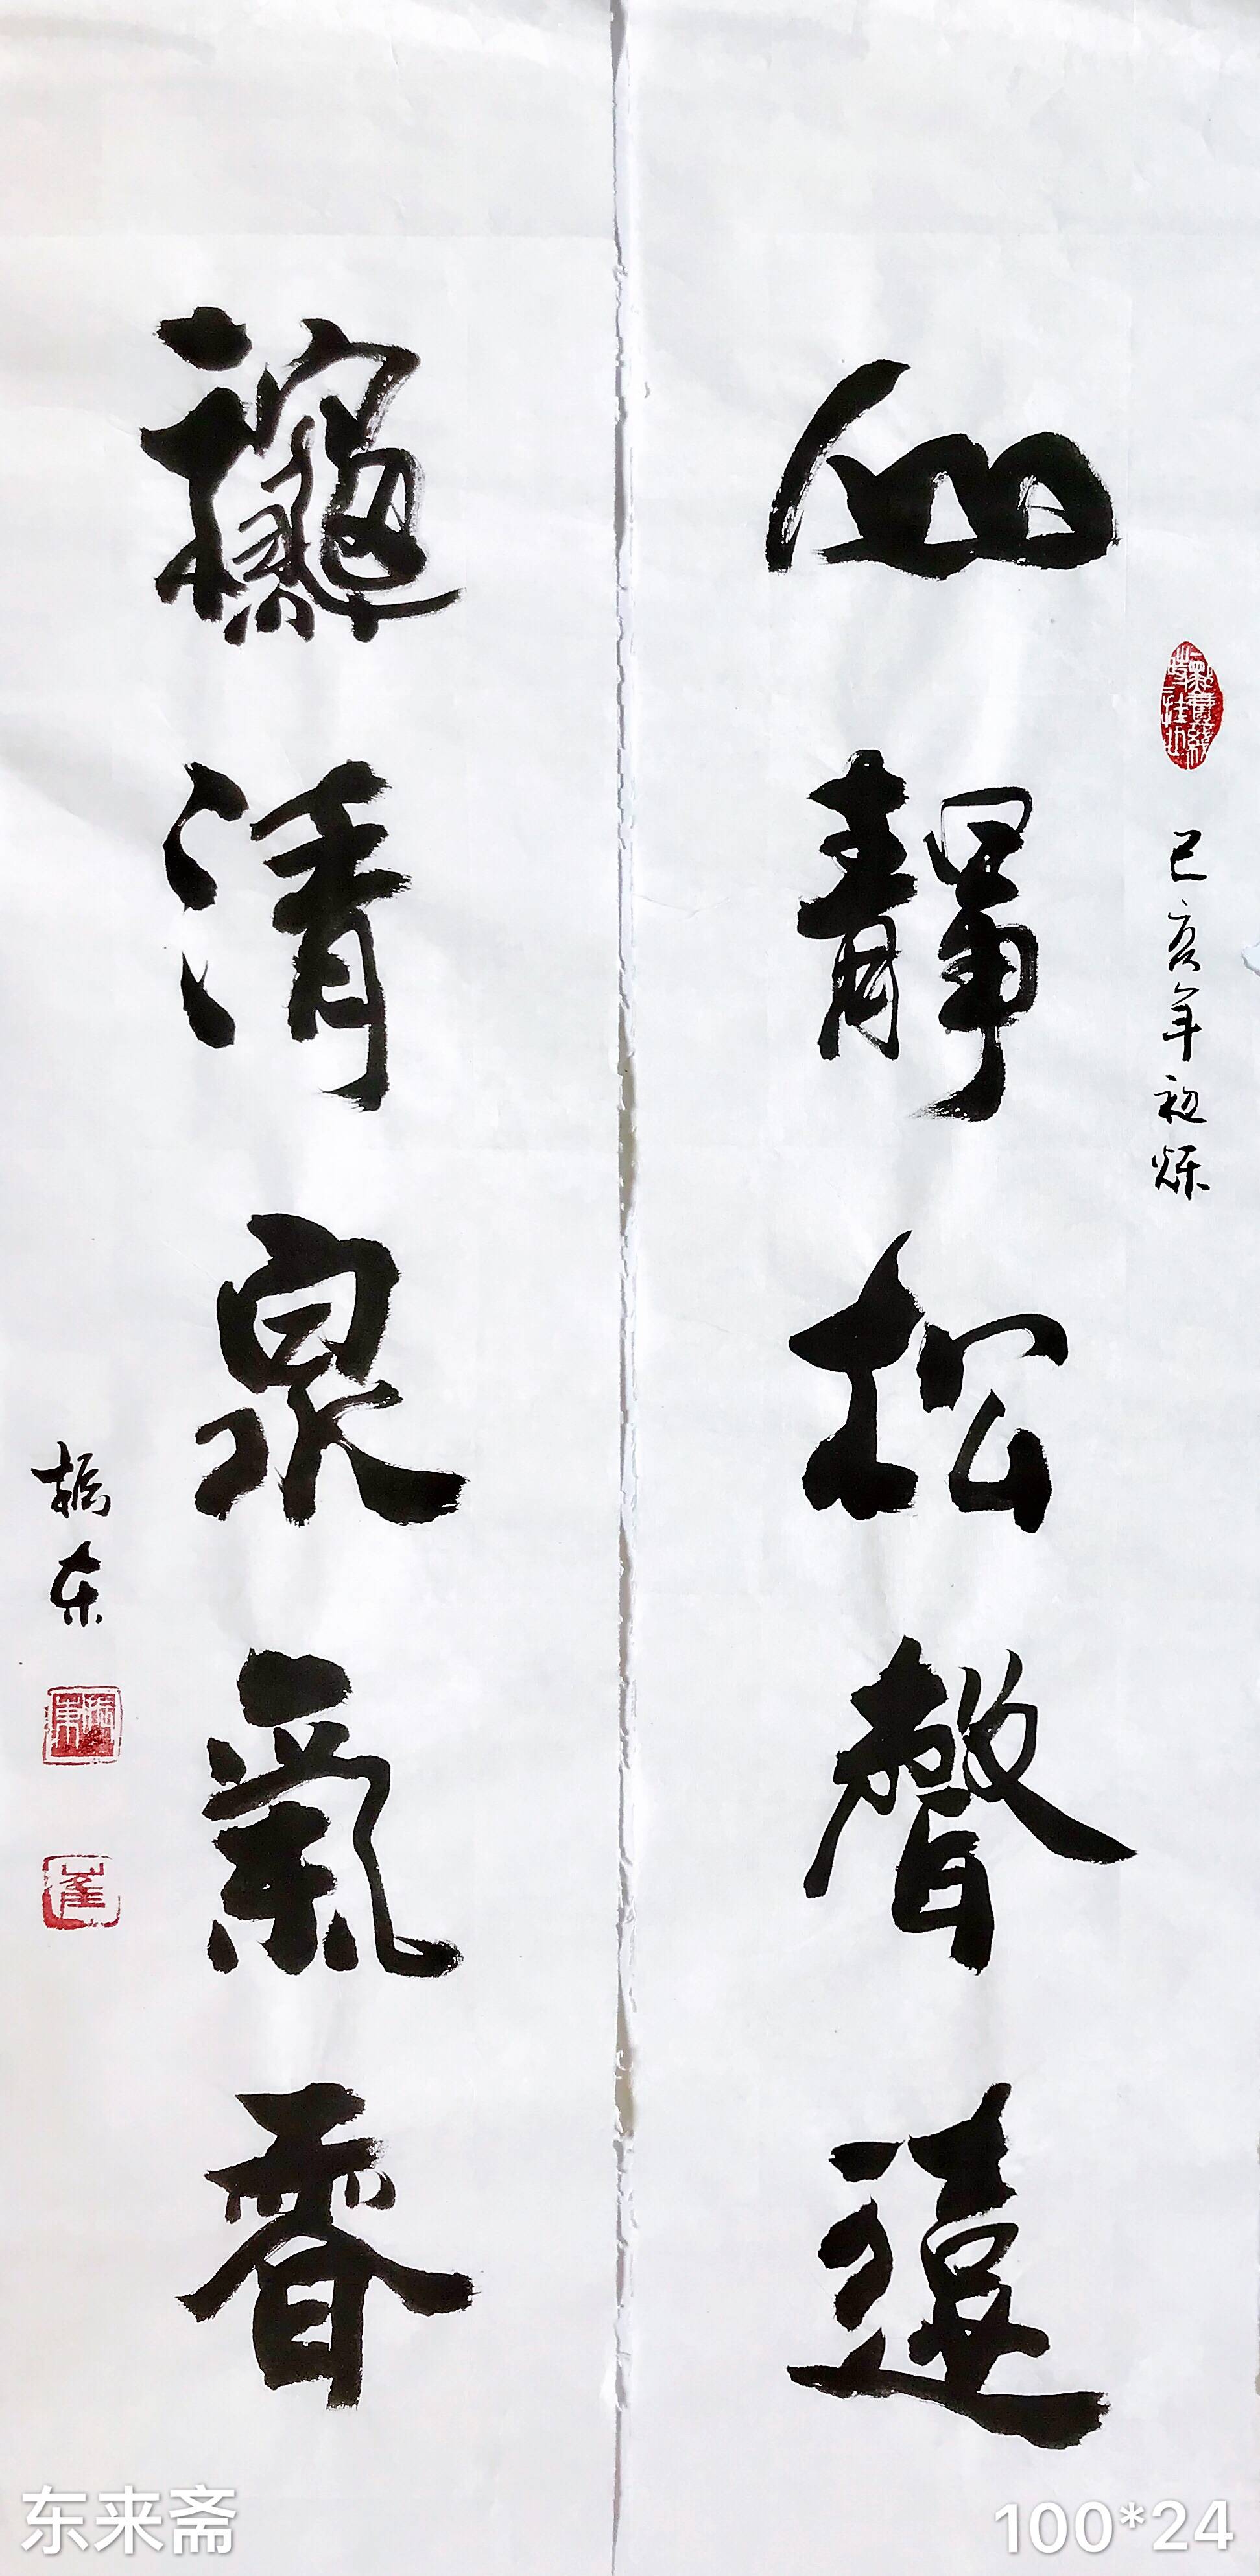 己亥年初秋
山靜松聲遠
龝清泉氣香
振东
振東
崔
东来斋
100*24